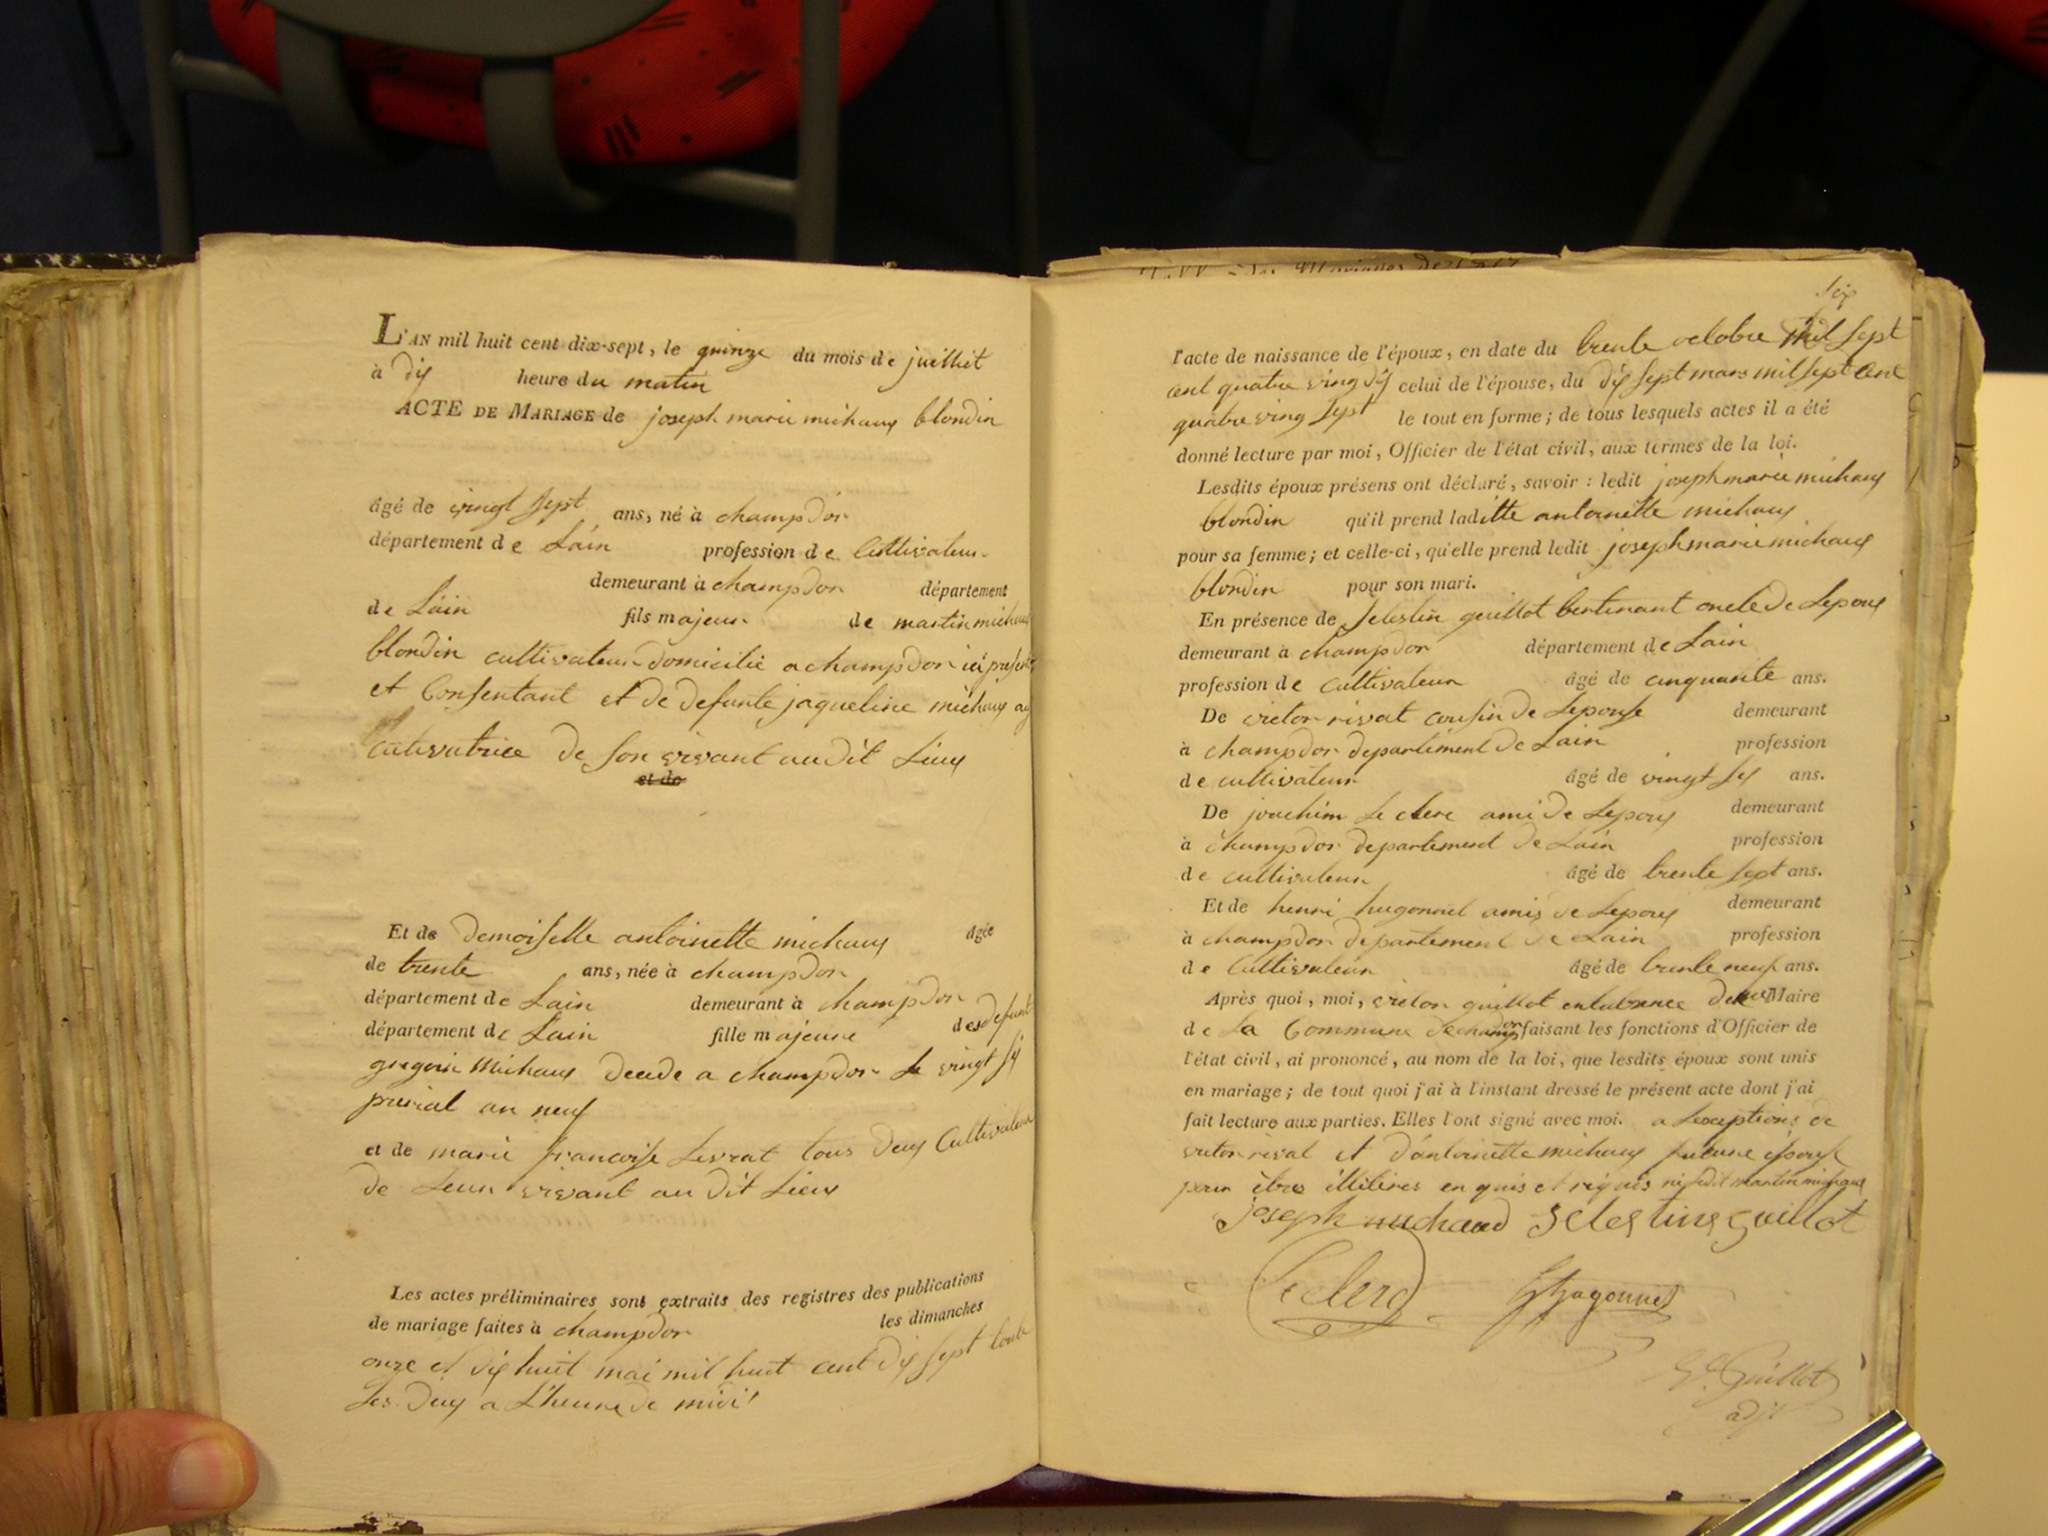 L'AN mil huit cent dix-sept, le quinze du mois de juilliet
à dix heure du matin
ACTE DE MARIAGE de joseph marie michaux blondin
âgé de vingt sept ans, né à champdor
département de Lain profession de Cultivateur
demeurant à champdor département
de Lain fils majeur de martin michaux
blondin cultivateur domicilié a champdor ici present
et Consentant et de defunte jaqueline michaux
cutivatrice de son vivant au dit Lieux
et de
Et de demoiselle antoinette michaux âgée
de trente ans, née à champdor
département de Lain demeurant à champdor
département de Lain fille majeure des defunt
gregoir michaux decede a champdor le vingt six
prerial an neuf
et de marie francoise Levrat tous deux Cultivateur
de Leur vivant au dit Lieux
Les actes préliminaires sont extraits des registres des publications
de mariage faites à champdor les dimanches
onze et dix huit mai mil huit cent dix sept toute
les deux a L'heure de midi
six
l'acte de naissance de l'époux, en date du trente octobre mil sept
cent quatre ving dix celui de l'épouse, du dix sept mars mil sept cent
quatre ving sept le tout en forme; de tous lesquels actes il a été
donné lecture par moi, Officier de l'état civil, aux termes de la loi.
Lesdits époux présens ont déclaré, savoir : ledit joseph marie michaux
blondin qu'il prend laditte antoinette michaux
pour sa femme; et celle-ci, qu'elle prend ledit joseph marie michaux
blondin pour son mari.
En présence de Selestin guillot oncle de Lepoux
demeurant à champdor département de Lain
profession de cultivateur âgé de cinquante ans.
De victor rivat cousin de Lepouse demeurant
à champdor departement de Lain profession
de cultivateur âgé de vingt six ans.
De joachim Le clerc ami de Lepoux demeurant
à champdor departement de Lain profession
de cultivateur âgé de trente sept ans.
Et de henri hugonnet amis de Lepoux demeurant
à champdor departement de Lain profession
de Cultivateur âgé de trente neuf ans.
Après quoi, moi, victor guillot en labsence de Maire
de La Commune de champdor faisant les fonctions d'Officier de
l'état civil, ai prononcé, au nom de la loi, que lesdits époux sont unis
en mariage; de tout quoi j'ai à l'instant dressé le présent acte dont j'ai
fait lecture aux parties. Elles l'ont signé avec moi. a Lexceptions de
victor rivat et d'antoinette michaux future épouse
pour êtres illitéres enquis et riquis martin michaux
joseph michaud Selestins guillot
Leclerc hugonnet
Vr Guillot
adjt